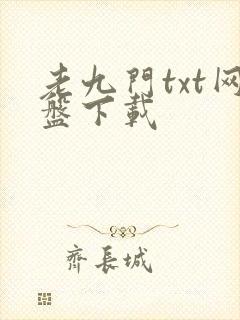 老九門txt网
盤下載
齊長城